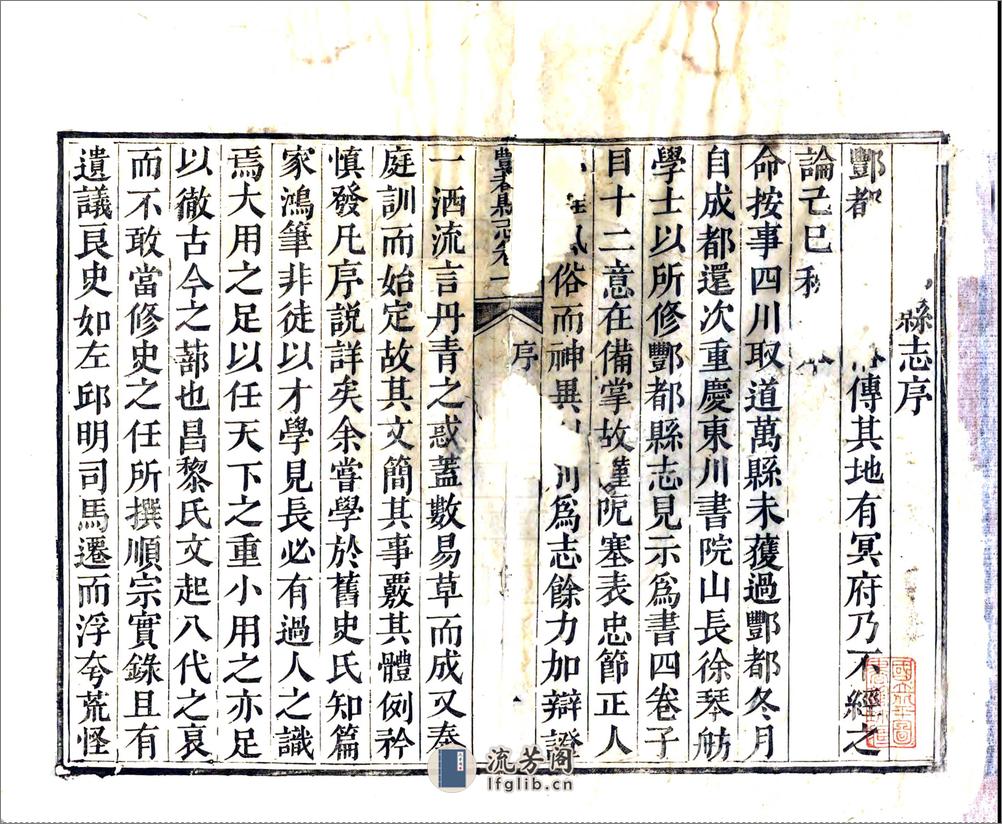 縣志序
酆都傳其地有冥府乃不經之
論己巳秋
命按事四川取道萬縣未獲過酆都冬月
自成都還次重慶東川書院山長徐琴舫
學士以所修酆都縣志見示為書四卷子
目十二意在備掌故謹阨塞表忠節正人
俗而神異為志餘力加辯證
豐都縣志卷一
序
一洒流言丹青之惑蓋數易草而成又奉
庭訓而始定故其文簡其事覈其體例矜
慎發凡序說詳矣余嘗學於舊史氏知篇
家鴻筆非徒以才學見長必有過人之識
焉大用之足以任天下之重小用之亦足
以徹古今之蔀也昌黎氏文起八代之衰
而不敢當修史之任所撰順宗實錄且有
遺議良史如左邱明司馬遷而浮夸荒怪
流芳閣
lfglib.cn